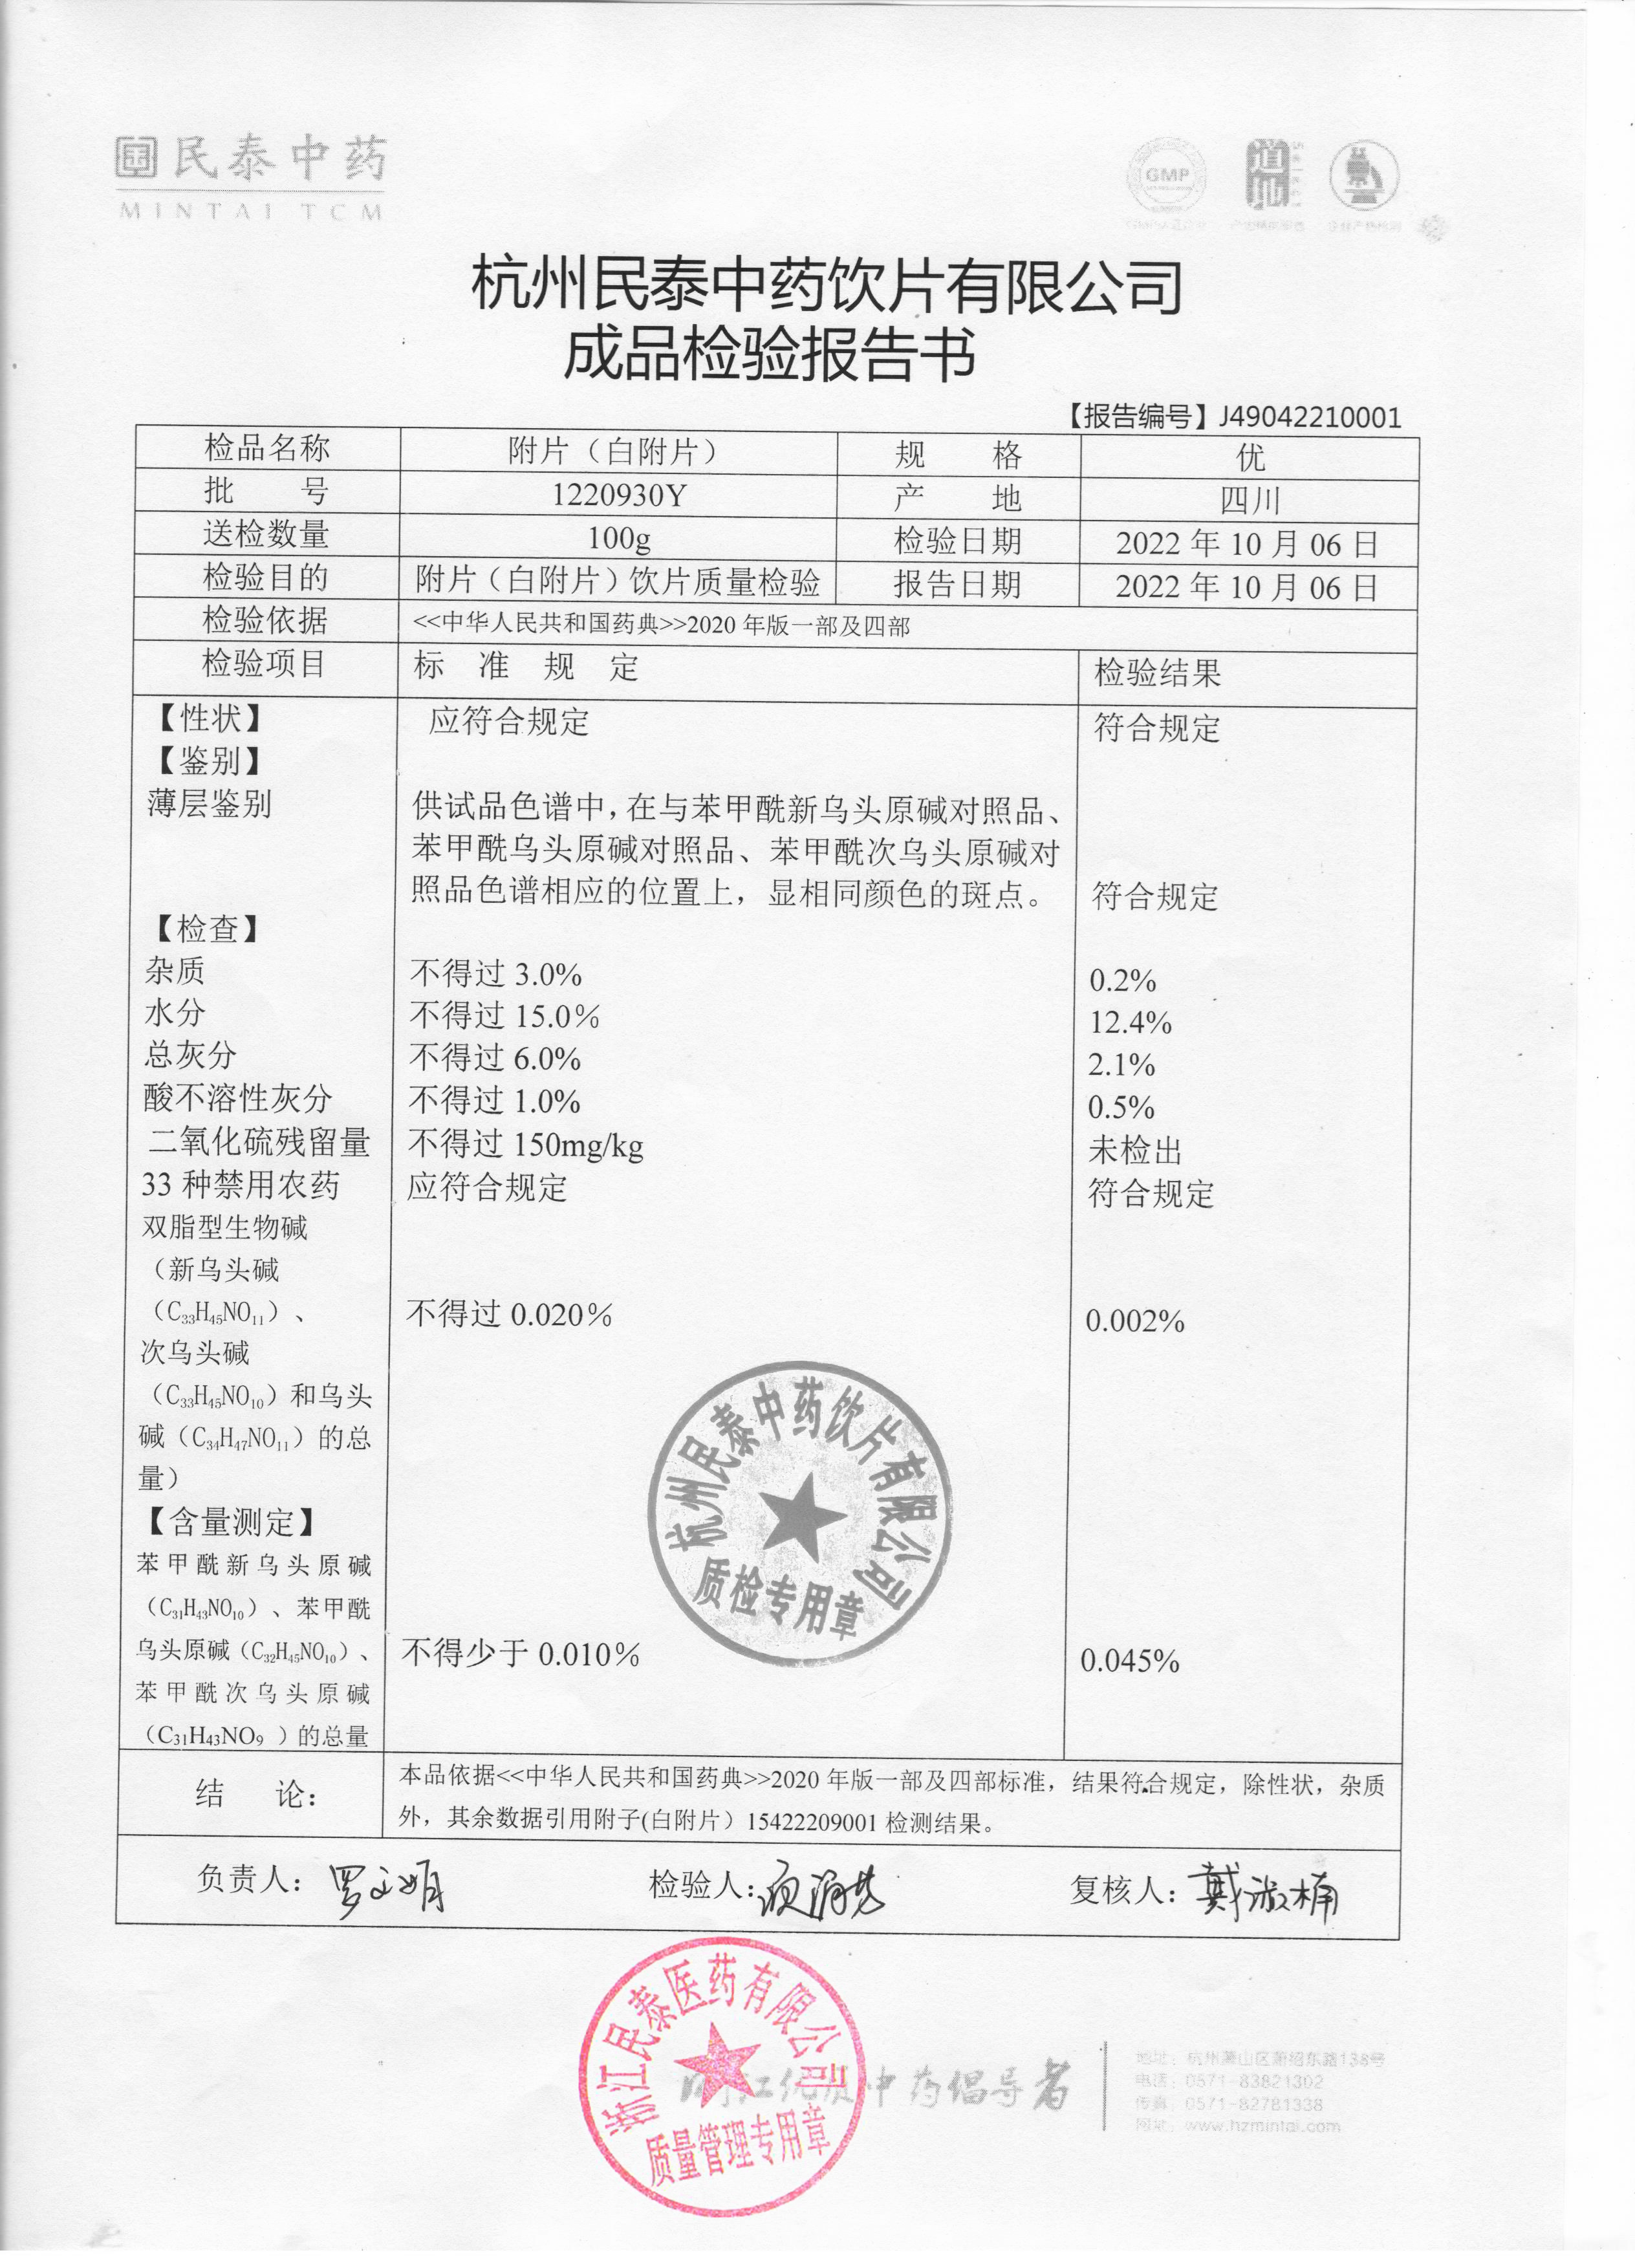 民泰中药
MINTAI TCM
GMP
杭州民泰中药饮片有限公司
成品检验报告书
【报告编号】J49042210001
检品名称 附片（白附片） 规 格 优
批 号 1220930Y 产 地 四川
送检数量 100g 检验日期 2022 年 10 月 06 日
检验目的 附片（白附片）饮片质量检验 报告日期 2022 年 10 月 06 日
检验依据 <<中华人民共和国药典>>2020 年版一部及四部
检验项目 标 准 规 定 检验结果
【性状】 应符合规定 符合规定
【鉴别】
薄层鉴别 供试品色谱中，在与苯甲酰新乌头原碱对照品、
苯甲酰乌头原碱对照品、苯甲酰次乌头原碱对
照品色谱相应的位置上，显相同颜色的斑点。 符合规定
【检查】
杂质 不得过 3.0% 0.2%
水分 不得过 15.0% 12.4%
总灰分 不得过 6.0% 2.1%
酸不溶性灰分 不得过 1.0% 0.5%
二氧化硫残留量 不得过 150mg/kg 未检出
33 种禁用农药 应符合规定 符合规定
双脂型生物碱
（新乌头碱
（C₃₃H₄₅NO₁₁）、 不得过 0.020% 0.002%
次乌头碱
（C₃₃H₄₅NO₁₀）和乌头
碱（C₃₄H₄₇NO₁₁）的总
量）
【含量测定】
苯甲酰新乌头原碱
（C₃₁H₄₃NO₁₀）、苯甲酰
乌头原碱（C₃₂H₄₅NO₁₀）、 不得少于 0.010% 0.045%
苯甲酰次乌头原碱
（C₃₁H₄₃NO₉ ）的总量
杭州民泰中药饮片有限公司
质检专用章
结 论： 本品依据<<中华人民共和国药典>>2020 年版一部及四部标准，结果符合规定，除性状，杂质
外，其余数据引用附子(白附片）15422209001 检测结果。
负责人： 检验人： 复核人：戴淑楠
浙江民泰医药有限公司
质量管理专用章
中药倡导者
地址：杭州萧山区萧绍东路138号
电话：0571-83821302
传真：0571-82781338
网址：www.hzmintai.com